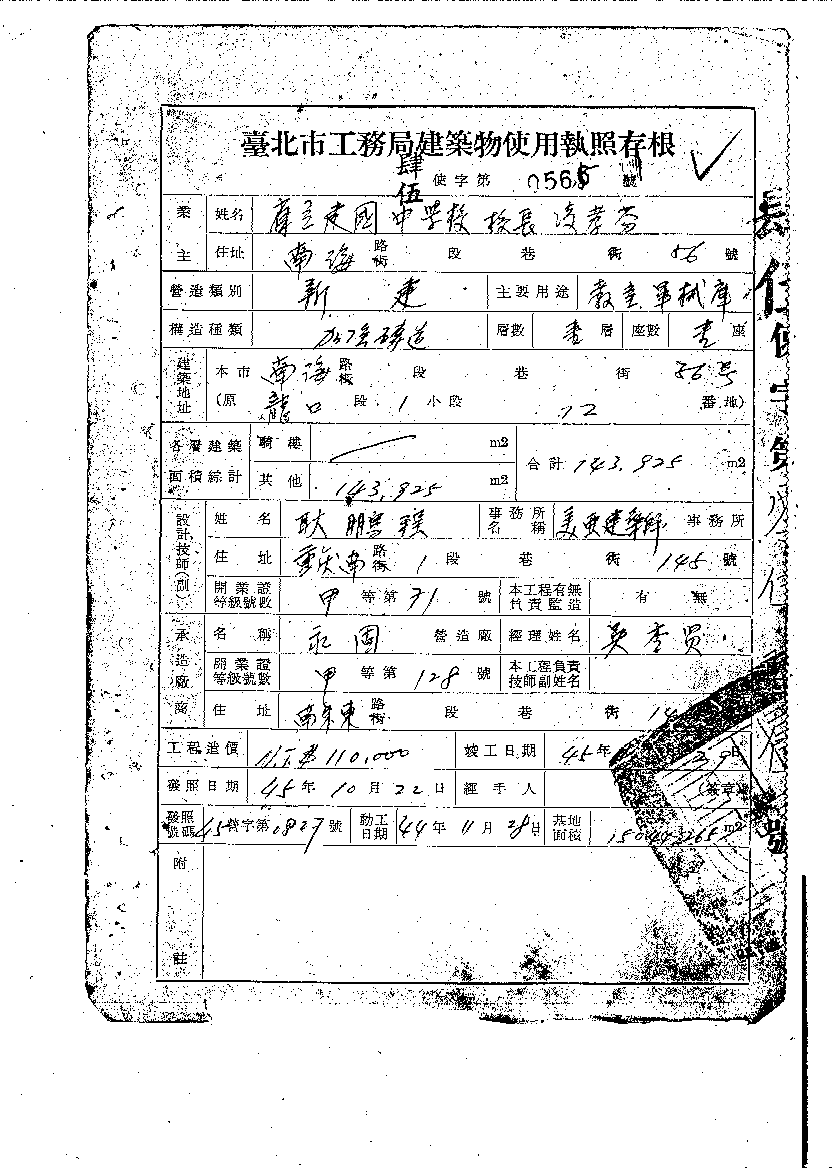 臺北市工務局建築物使用執照存根
肆伍 使字第 0565 號
業主 姓名 省立建國中學校 校長
住址 南海 路街 段 巷 街 56 號
營造類別 新建 主要用途 教室軍械庫
構造種類 加強磚造 層數 壹 層 座數 壹 座
建築地址 本市 南海 路街 段 巷 街 56号
(原 龍口 段 1 小段 12 番地)
各層建築面積綜計 騎樓 m2 合計 143.925 m2
其他 143.925 m2
設計技師(副) 姓名 耿鵬程 事務所名稱 美東建築師 事務所
住址 重庆南 路街 1 段 巷 街 145 號
開業證等級號數 甲 等第 71 號 本工程有無負責監造 有 無
承造廠商 名稱 永固 營造廠 經理姓名 吳
開業證等級號數 甲 等第 128 號 本工程負責技師副姓名
住址 南京東 路街 段 巷 街 14
工程造價 110,000 竣工日期 45年 日
發照日期 45年 10月 22日 經手人 (簽章)
發照號碼 45 營字第 0827 號 動工日期 44年 11月 28日 基地面積 m2
附註